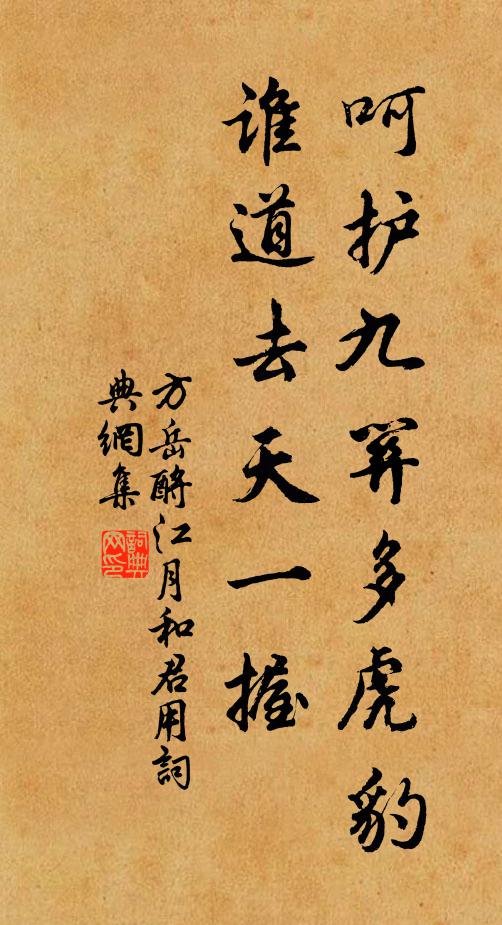 呵护九关多虎豹
谁道去天一握
方岳酹江月和君用詞
典網集
詞典
网印